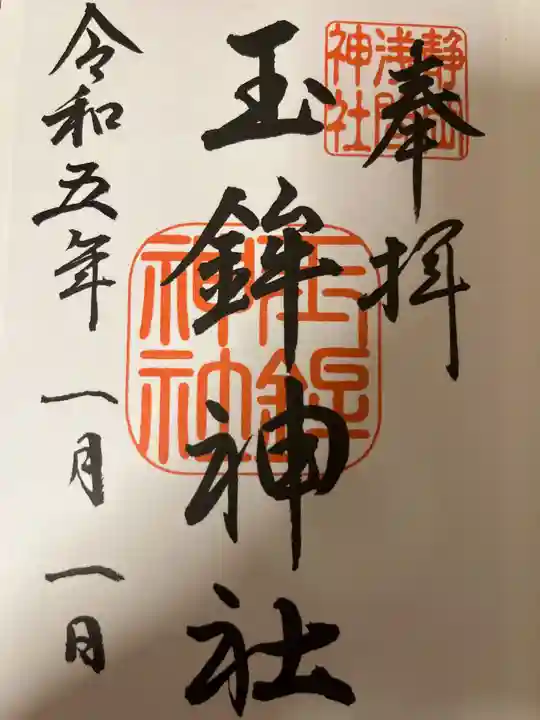 奉拝
静岡
浅間
神社
玉鉾神社
玉鉾
神社
令和五年一月一日